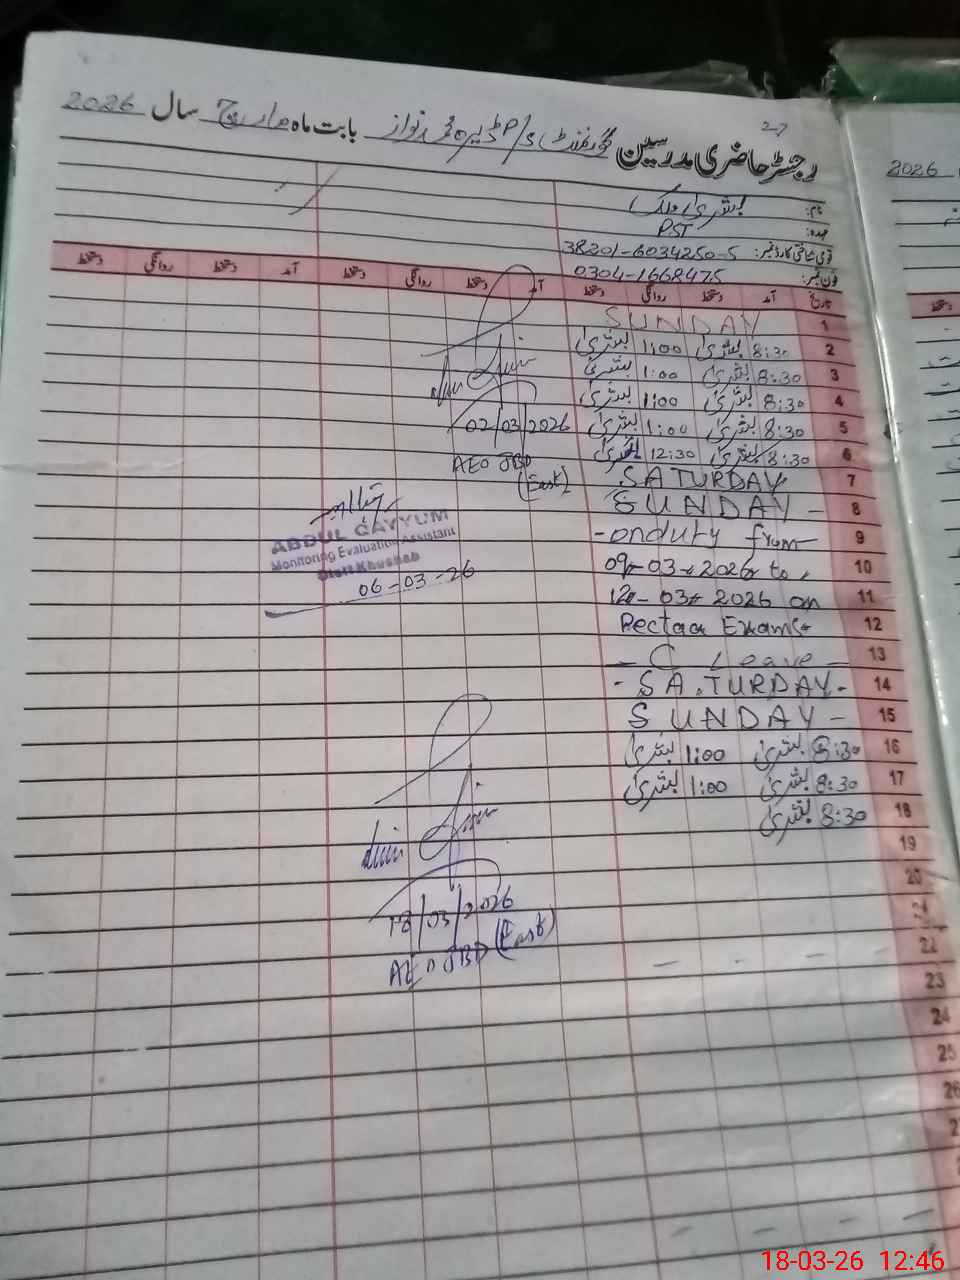 27
رجسٹر حاضری مدرسین گورنمنٹ P/S ڈیرہ محمد نواز بابت ماہ مارچ سال 2026
نام: بشریٰ ملک
عہدہ: PST
قومی شناختی کارڈ نمبر: 38201-6034250-5
فون نمبر: 0304-1668475
تاریخ آمد دستخط روانگی دستخط آمد دستخط روانگی دستخط آمد دستخط روانگی دستخط
1 SUNDAY
2 8:30 بشریٰ 1:00 بشریٰ
3 8:30 بشریٰ 1:00 بشریٰ
4 8:30 بشریٰ 1:00 بشریٰ
5 8:30 بشریٰ 1:00 بشریٰ
02/03/2026
6 8:30 بشریٰ 12:30 بشریٰ
AEO JBD
(East)
7 SATURDAY
8 SUNDAY -
9 - onduty from
ABDUL QAYYUM
Monitoring Evaluation Assistant
Distt Khushab
06-03-26
10 09-03-2026 to
11 12-03-2026 on
12 Pectaa Exams
13 - C Leave -
14 - SATURDAY -
15 SUNDAY -
16 8:30 بشریٰ 1:00 بشریٰ
17 8:30 بشریٰ 1:00 بشریٰ
18 8:30 بشریٰ
19
20
21
18/03/2026
AEO JBD (East)
22
23
24
25
26
2026
دستخط
18-03-26 12:46